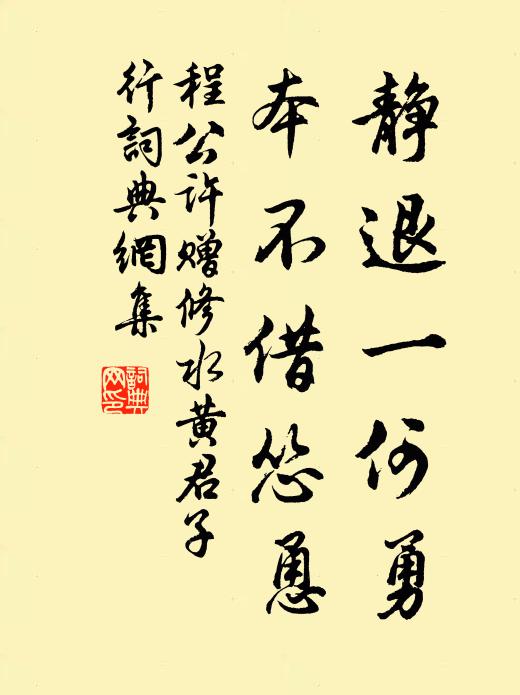 静退一何勇
本不借怂恿
程公许赠修水黄君子
行詞典網集
詞典网印